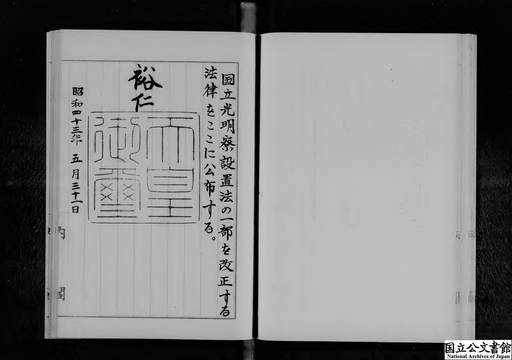 国立光明寮設置法の一部を改正する
法律をここに公布する。
裕仁
天皇
御璽
昭和四十三年五月三十一日
内閣
国立公文書館
National Archives of Japan